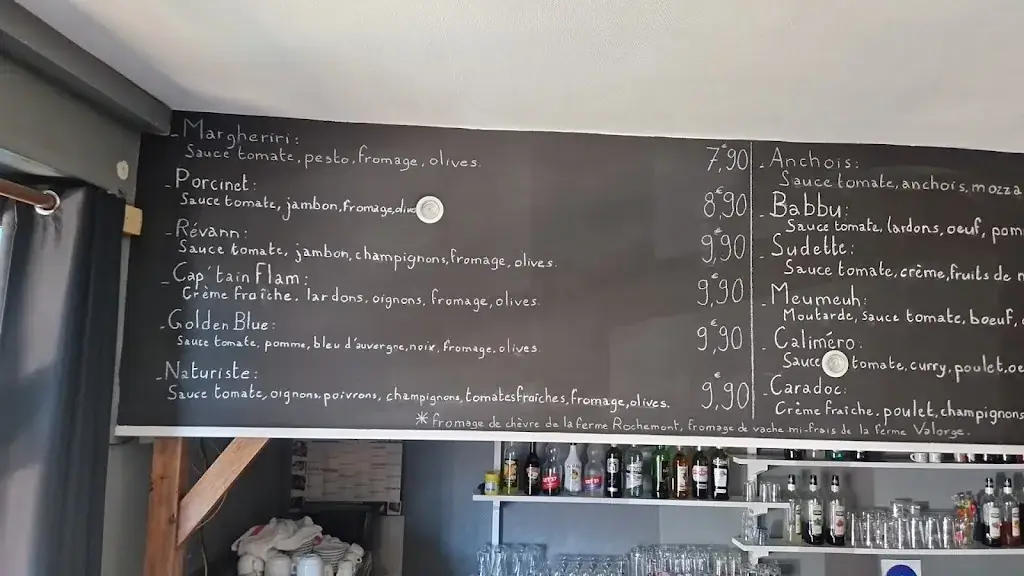 - Margheriri:
Sauce tomate, pesto, fromage, olives.
7,€90
- Porcinet:
Sauce tomate, jambon, fromage,
8,€90
- Révann:
Sauce tomate, jambon, champignons, fromage, olives.
9,€90
- Cap'tain Flam:
Crème fraîche, lardons, oignons, fromage, olives.
9,€90
- Golden Blue:
Sauce tomate, pomme, bleu d'auvergne, noix, fromage, olives.
9,€90
- Naturiste:
Sauce tomate, oignons, poivrons, champignons, tomates fraîches, fromage, olives.
9,€90
- Anchois:
Sauce tomate, anchois, mozza
- Babbu:
Sauce tomate, lardons, oeuf, pom
- Sudette:
Sauce tomate, crème, fruits de
- Meumeuh:
Moutarde, sauce tomate, boeuf,
- Caliméro:
Sauce tomate, curry, poulet,
- Caradoc:
Crème fraîche, poulet, champignons
* Fromage de chèvre de la ferme Rochemont, fromage de vache mi-frais de la ferme Valorge.